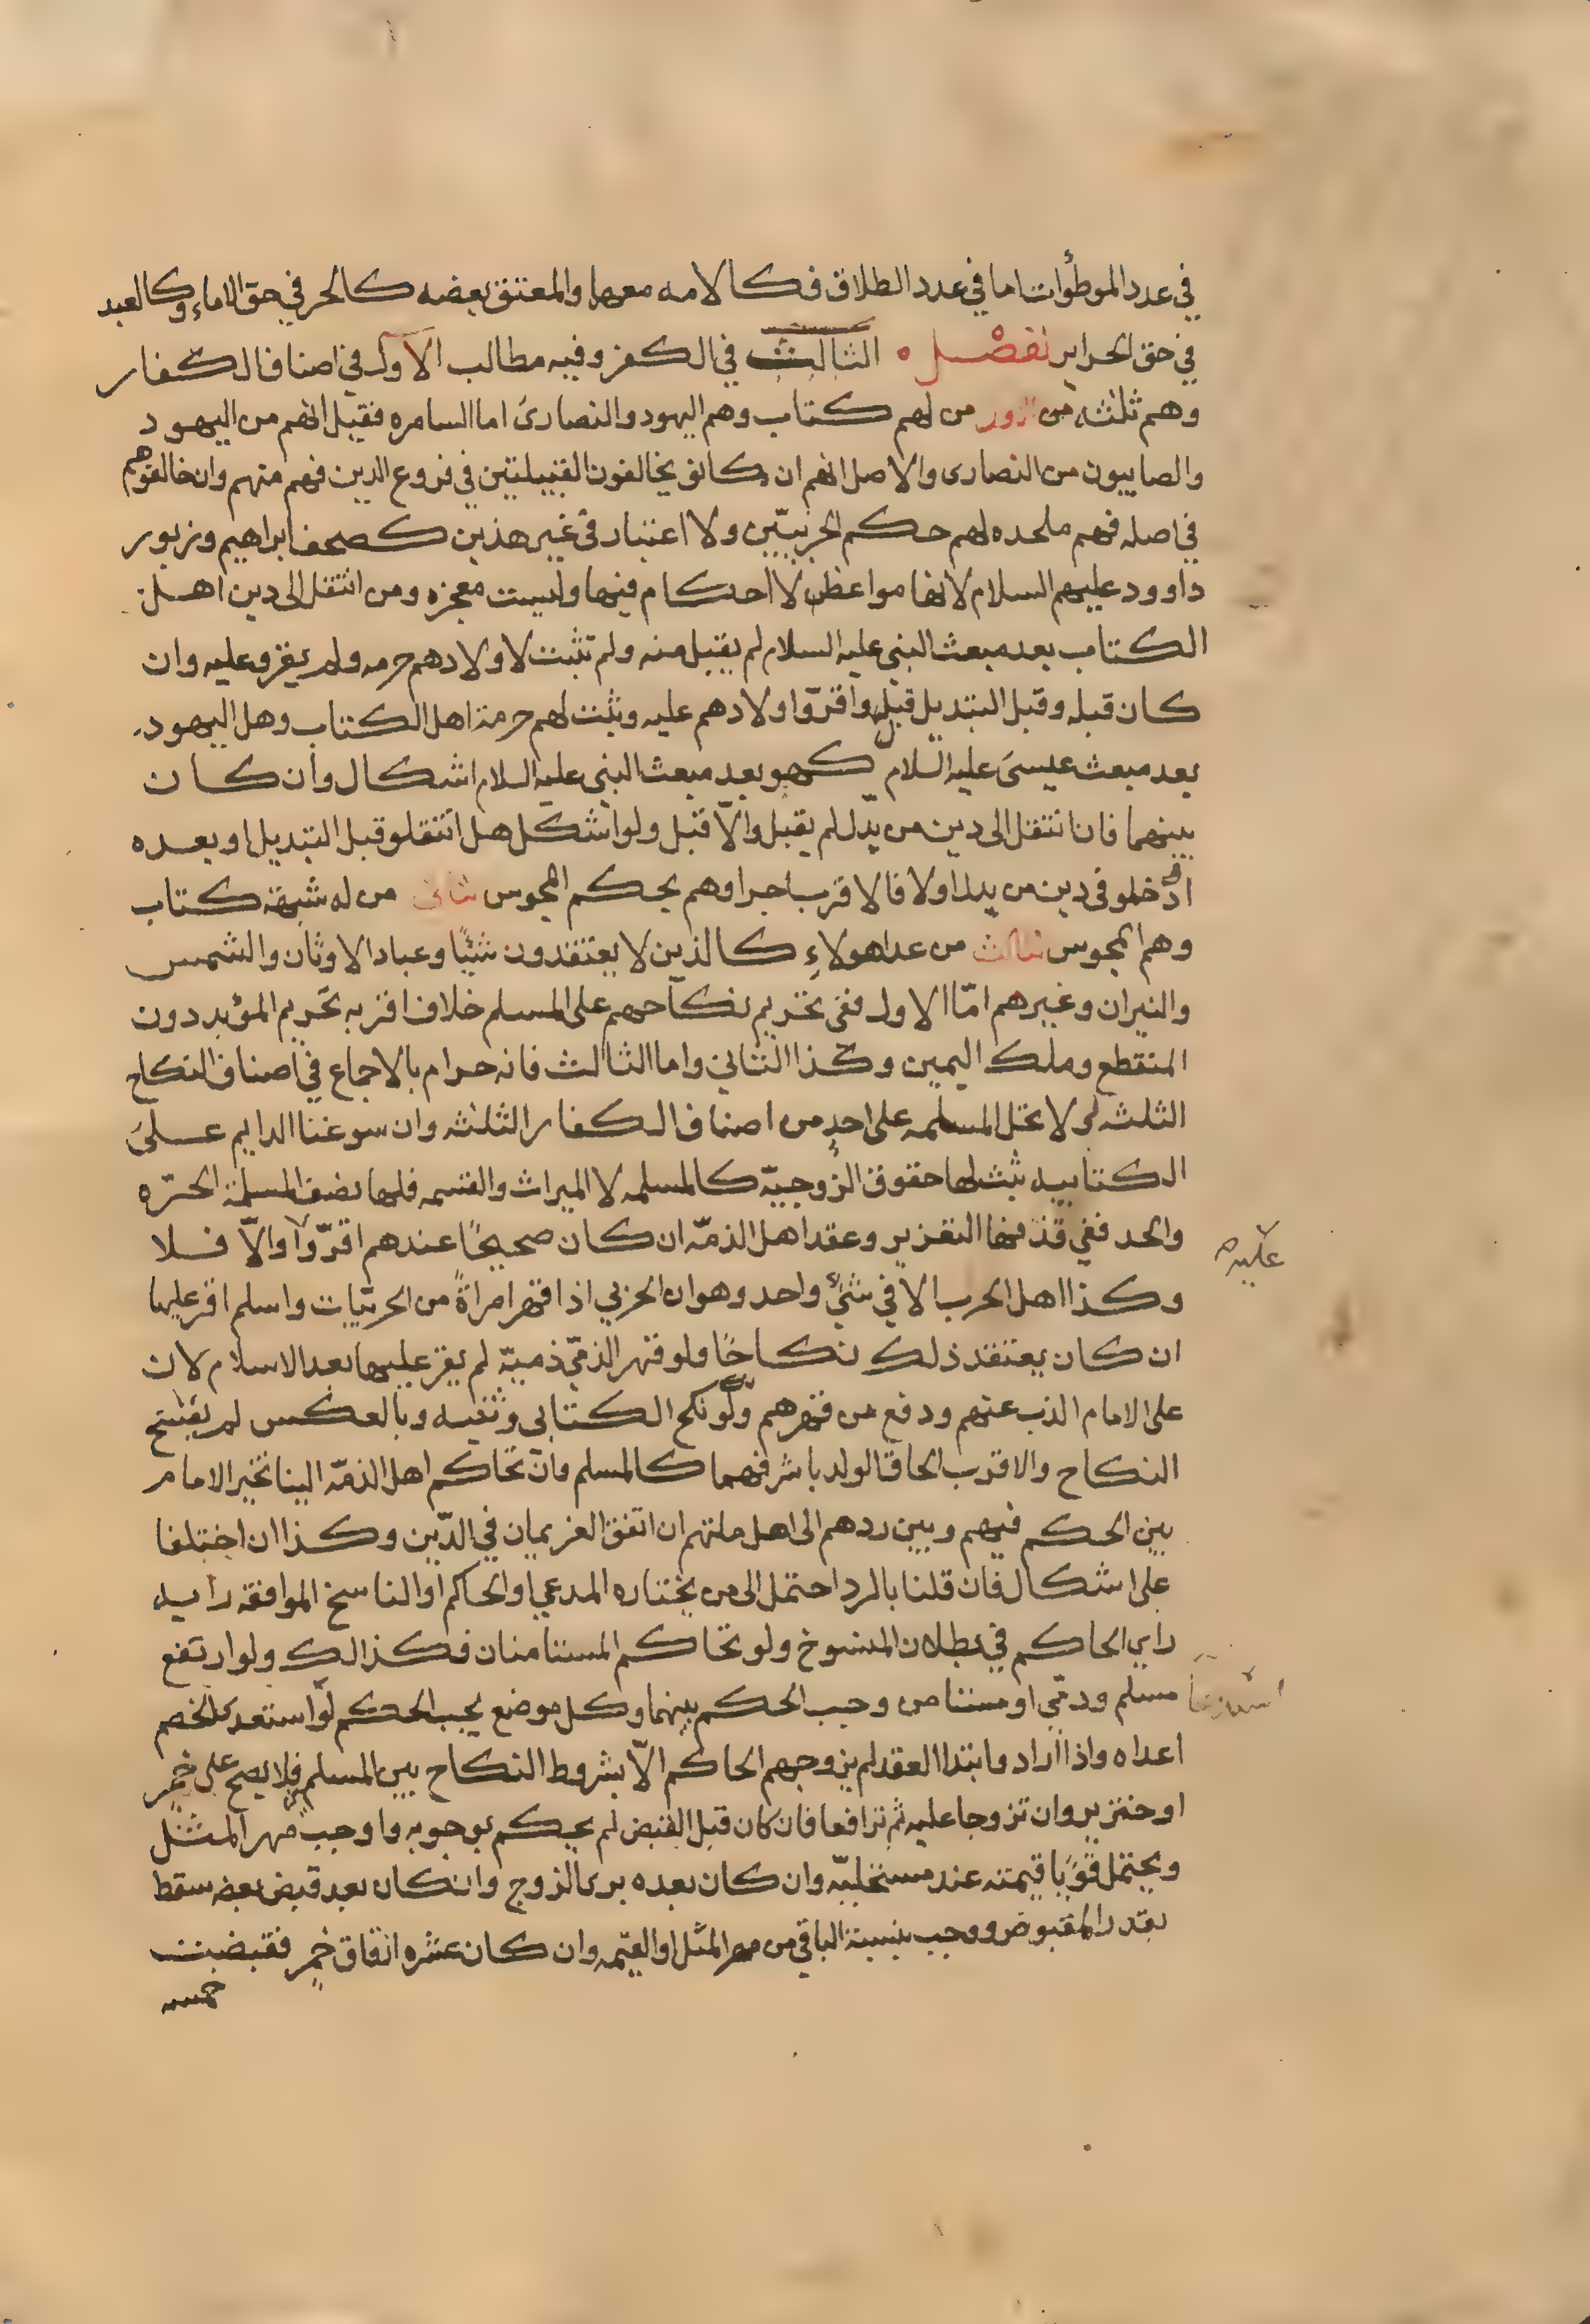 في عدد الموطؤات اما في عدد الطلاق فكالامه معها والمعتق بعضه كالحر في حق الاماء وكالعبد
في حق الحراير الثالث في الكفر وفيه مطالب الاول في اصناف الكفار
وهم ثلثه من لهم كتاب وهم اليهود والنصارى اما السامره فقيل انهم من اليهود
والصابيون من النصارى والاصل انهم ان كانو يخالفون القبيلتين في فروع الدين فهم منهم وان خالفوهم
في اصله فهم ملحده لهم حكم الحربيّين ولا اعتبار في غير هذين كصحف ابراهيم وزبور
داوود عليهم السلام لانها مواعظ لا احكام فيها وليست معجزه ومن انتقل الى دين اهل
الكتاب بعد مبعث النبي عليه السلام لم يقبل منه ولم تثبت لاولادهم حرمه ولم يقرو عليه وان
كان قبله وقبل التبديل قبل واقرّوا اولادهم عليه وثبت لهم حرمة اهل الكتاب وهل اليهود
بعد مبعث عيسى عليه السلام كهو بعد مبعث النبي عليه السلام اشكال وان كان
بينهما فان انتقل الى دين من بدّل لم يقبل والّا قبل ولو اشكل هل انتقلو قبل التبديل او بعده
او دخلو في دين من بدل اولا فالاقرب اجراوهم بحكم المجوس ثانى من له شبهة كتاب
وهم المجوس ثالث من عدا هولاءِ كالذين لا يعتقدون شيئًا وعباد الاوثان والشمس
والنيران وغيرهم امّا الاول ففي تحريم نكاحهم على المسلم خلاف اقربه تحريم المؤبد دون
المنقطع وملك اليمين وكذا الثاني واما الثالث فانه حرام بالاجماع في اصناف النكاح
الثلثه ولا تحل المسلمه على احدٍ من اصناف الكفار الثلثه وان سوغنا الدايم على
الكتابيه ثبت لها حقوق الزوجيّة كالمسلمه لا الميراث والقسمه فلها نصف المسلمة الحرّه
والحد ففي قذفها التعزير وعقد اهل الذمّه ان كان صحيحًا عندهم اقرّوا والّا فلا
عليه
وكذا اهل الحرب الا في شيءٍ واحد وهو ان الحربي اذا قهر امراةً من الحربيّات واسلم اقر عليها
ان كان يعتقد ذلك نكاحًا ولو قهر الذمّي ذميّه لم يقر عليها بعد الاسلام لان
على الامام الذب عنهم ودفع من قهرهم ولو نكح الكتابي وثنيه وبالعكس لم يفسخ
النكاح والاقرب الحاق الولد باشرفهما كالمسلم وان تحاكم اهل الذمّه الينا تخير الامام
بين الحكم فيهم وبين ردهم الى اهل ملتهم ان اتفق الغريمان في الدّين وكذا ان اختلفا
على اشكال فان قلنا بالرد احتمل الى من يختاره المدعي او الحاكم او الناسخ الموافقه رايه
راي الحاكم في بطلان المنسوخ ولو تحاكم المستامنان فكذالك ولو ارتفع
مسلم وذمّي او مستامن وجب الحكم بينهما وكل موضع يجب الحكم لو استعدى الخصم
اعداه واذا اراد وابتدا العقد لم يزوجهم الحاكم الّا بشروط النكاح بين المسلمين فلا يصح على خمر
او خنزير وان تزوجا عليه ثم ترافعا فان كان قبل القبض لم يحكم بوجوبه واوجب مهر المثل
ويحتمل قوّيا قيمته عند مستحليّه وان كان بعده برى الزوج وان كان بعد قبض بعضه سقط
بقدر المقبوض ووجب بنسبة الباقي من مهر المثل او القيمه وان كان عشره ازقاق خمر فقبضت
خمسه